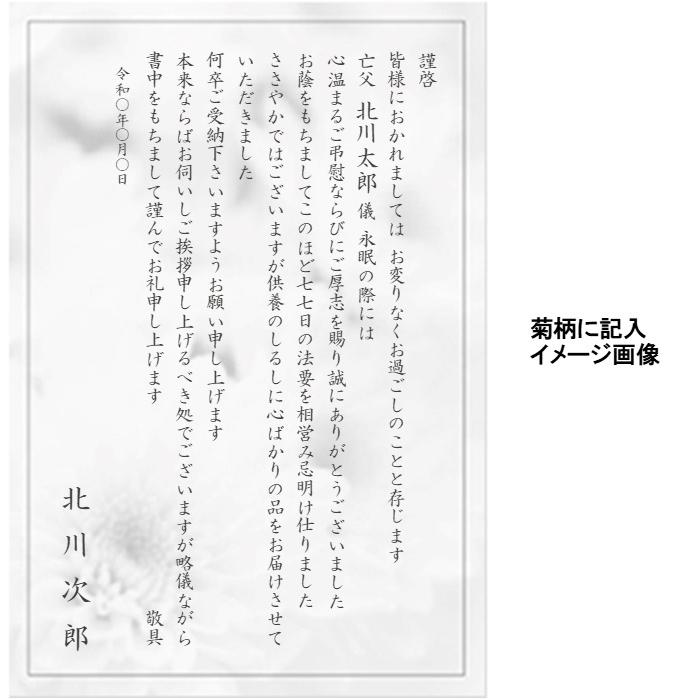 謹啓
皆様におかれましては お変りなくお過ごしのことと存じます
亡父 北川太郎 儀 永眠の際には
心温まるご弔慰ならびにご厚志を賜り誠にありがとうございました
お蔭をもちましてこのほど七七日の法要を相営み忌明け仕りました
ささやかではございますが供養のしるしに心ばかりの品をお届けさせて
いただきました
何卒ご受納下さいますようお願い申し上げます
本来ならばお伺いしご挨拶申し上げるべき処でございますが略儀ながら
書中をもちまして謹んでお礼申し上げます
敬具
令和〇年〇月〇日
北川次郎
菊柄に記入
イメージ画像